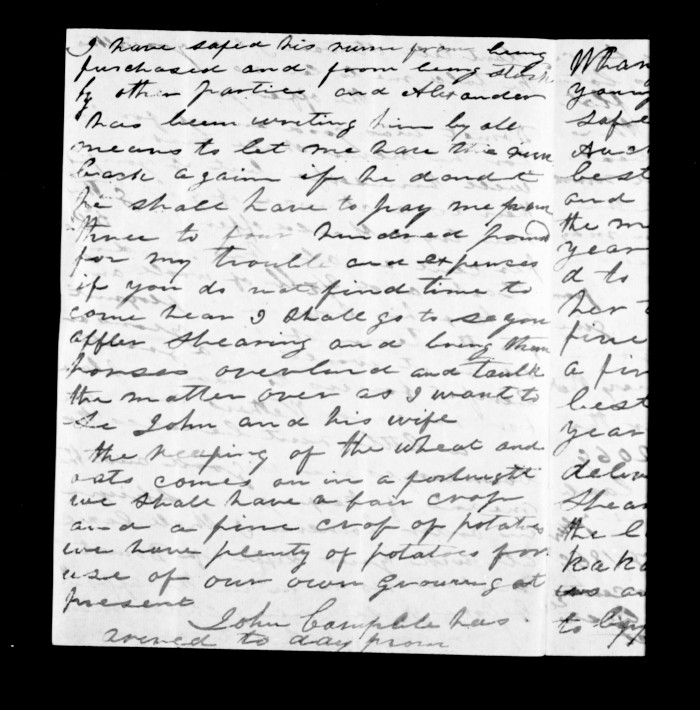 I have safed his runn from being
purchased and from being stock
by other parties and Alexander
has been writing him by all
means to let me have the runn
back again if he dond t
he shall have to pay me from
three to four hundred pound
for my trouble and expences
if you do not find time to
come hear I shall go to se you
affter shearing and bring them
horses overland and taulk
the matter over as I want to
Se John and his wife
the reaping of the wheat and
oats comes on in a fortnight
we shall have a fair crop
and a fine crop of potatos
we have plenty of potatos for
use of our own growing at
present
John Campble has
arived to day from
Whan
young
safe
best
and
the m
year
d to
her t
fine
a fin
best
year
deliv
Shear
the l
kaka
us an
to